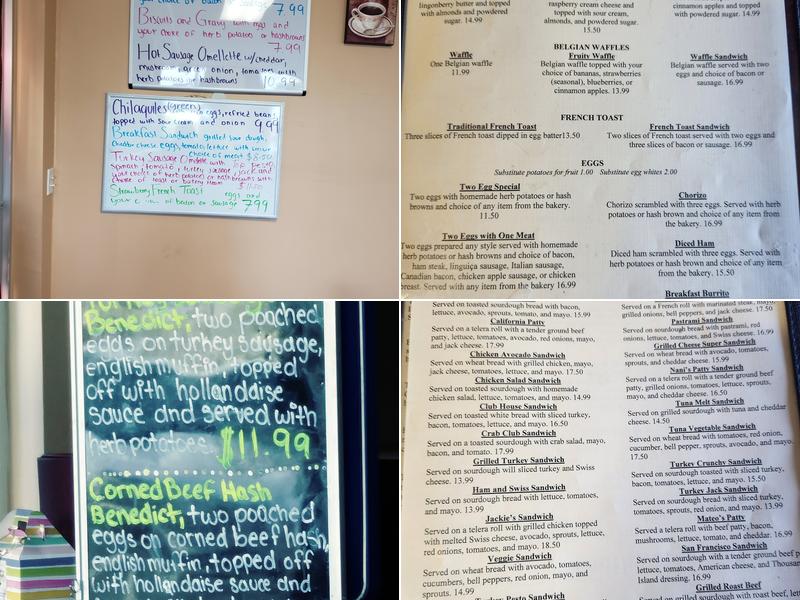 7.99
Biscuits and Gravy with egg and
your choice of herb potatoes or hashbrowns
7.99
Hot Sausage Omellette w/cheddar,
onion, tomatoes with
herb potatoes or hashbrowns 10.99
Chilaquiles (green) eggs, refried beans
topped with sour cream and onion 9.99
Breakfast Sandwich grilled sour dough,
cheddar cheese, eggs, tomato, lettuce with
choice of meat $8.50
Turkey Sausage Omelette with
spinach, tomato, turkey sausage, jack and
your choice of herb potatoes or hashbrowns with
choice of toast or bakery item
$11.50
Strawberry French Toast eggs and
your choice of bacon or sausage 7.99
lingonberry butter and topped
with almonds and powdered
sugar. 14.99
raspberry cream cheese and
topped with sour cream,
almonds, and powdered sugar.
15.50
cinnamon apples and topped
with powdered sugar. 14.99
BELGIAN WAFFLES
Waffle
One Belgian waffle
11.99
Fruity Waffle
Belgian waffle topped with your
choice of bananas, strawberries
(seasonal), blueberries, or
cinnamon apples. 13.99
Waffle Sandwich
Belgian waffle served with two
eggs and choice of bacon or
sausage. 16.99
FRENCH TOAST
Traditional French Toast
Three slices of French toast dipped in egg batter13.50
French Toast Sandwich
Two slices of French toast served with two eggs and
three slices of bacon or sausage. 16.99
EGGS
Substitute potatoes for fruit 1.00 Substitute egg whites 2.00
Two Egg Special
Two eggs with homemade herb potatoes or hash
browns and choice of any item from the bakery.
11.50
Chorizo
Chorizo scrambled with three eggs. Served with herb
potatoes or hash brown and choice of any item from
the bakery. 16.99
Two Eggs with One Meat
Two eggs prepared any style served with homemade
herb potatoes or hash browns and choice of bacon,
ham steak, linguiça sausage, Italian sausage,
Canadian bacon, chicken apple sausage, or chicken
breast. Served with any item from the bakery 16.99
Diced Ham
Diced ham scrambled with three eggs. Served with
herb potatoes or hash brown and choice of any item
from the bakery. 15.50
Breakfast Burrito
Benedict, two poached
eggs on turkey sausage,
english muffin, topped
off with hollandaise
sauce and served with
herb potatoes $11.99
Corned Beef Hash
Benedict, two poached
eggs on corned beef hash,
english muffin, topped off
with hollandaise sauce and
Served on toasted sourdough bread with bacon,
lettuce, avocado, sprouts, tomato, and mayo. 15.99
California Patty
Served on a telera roll with a tender ground beef
patty, lettuce, tomatoes, avocado, red onions, mayo,
and jack cheese. 17.99
Chicken Avocado Sandwich
Served on wheat bread with grilled chicken, mayo,
jack cheese, tomatoes, lettuce, and mayo. 17.50
Chicken Salad Sandwich
Served on toasted sourdough with homemade
chicken salad, lettuce, tomatoes, and mayo. 14.99
Club House Sandwich
Served on toasted white bread with sliced turkey,
bacon, tomatoes, lettuce, and mayo. 16.50
Crab Club Sandwich
Served on a toasted sourdough with crab salad, mayo,
bacon, and tomato. 17.99
Grilled Turkey Sandwich
Served on sourdough will sliced turkey and Swiss
cheese. 13.99
Ham and Swiss Sandwich
Served on sourdough bread with lettuce, tomatoes,
and mayo. 13.99
Jackie's Sandwich
Served on a telera roll with grilled chicken topped
with melted Swiss cheese, avocado, sprouts, lettuce,
red onions, tomatoes, and mayo. 18.50
Veggie Sandwich
Served on wheat bread with avocado, tomatoes,
cucumbers, bell peppers, red onion, mayo, and
sprouts. 14.99
Turkey Pesto Sandwich
Served on a French roll with marinated steak, mayo,
grilled onions, bell peppers, and jack cheese. 17.50
Pastrami Sandwich
Served on sourdough bread with pastrami, red
onions, lettuce, tomatoes, and Swiss cheese. 16.99
Grilled Cheese Super Sandwich
Served on wheat bread with avocado, tomatoes,
sprouts, and cheddar cheese. 15.99
Nani's Patty Sandwich
Served on a telera roll with a tender ground beef
patty, grilled onions, tomatoes, lettuce, sprouts,
mayo, and cheddar cheese. 16.50
Tuna Melt Sandwich
Served on grilled sourdough with tuna and cheddar
cheese. 14.50
Tuna Vegetable Sandwich
Served on wheat bread with tomatoes, red onion,
cucumber, bell pepper, sprouts, avocado, and mayo.
17.50
Turkey Crunchy Sandwich
Served on sourdough toasted with sliced turkey,
bacon, tomatoes, lettuce, and mayo. 15.50
Turkey Jack Sandwich
Served on sourdough bread with sliced turkey,
tomatoes, onions, lettuce, and mayo. 13.99
Mateo's Patty
Served on a telera roll with beef patty, bacon,
mushrooms, lettuce, tomato, and chipotle. 16.99
San Francisco Sandwich
Served on sourdough with a tender ground beef patty,
lettuce, tomatoes, American cheese, and Thousand
Island dressing. 16.99
Grilled Roast Beef